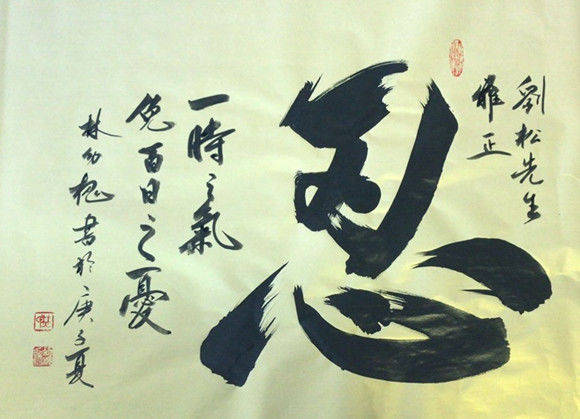 劉松先生
雅正
忍
一時之氣
免百日之憂
林書於庚子夏